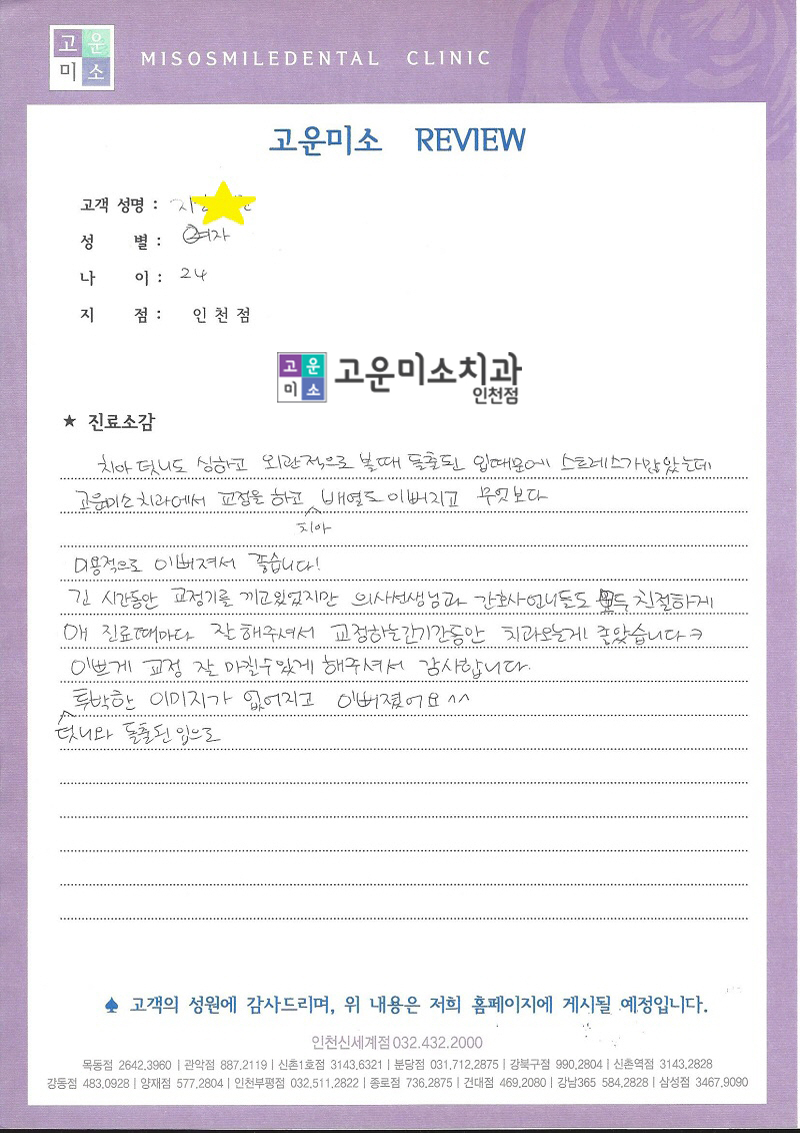 고운
미소
MISOSMILEDENTAL CLINIC
고운미소 REVIEW
고객 성명 :
성 별 : 여자
나 이 : 24
지 점 : 인천점
고운
미소
고운미소치과
인천점
★ 진료소감
치아 덧니도 심하고 외관적으로 볼때 돌출된 입때문에 스트레스가많았는데
고운미소치과에서 교정을 하고 배열도 이뻐지고 무엇보다
치아
미용적으로 이뻐져서 좋습니다!
긴 시간동안 교정기를 끼고있었지만 의사선생님과 간호사언니들도 모두 친절하게
매 진료때마다 잘해주셔서 교정하는긴기간동안 치과오는게 좋았습니다ㅋ
이쁘게 교정 잘 마칠수있게 해주셔서 감사합니다.
투박한 이미지가 없어지고 이뻐졌어요^^
덧니와 돌출된입으로
♠ 고객의 성원에 감사드리며, 위 내용은 저희 홈페이지에 게시될 예정입니다.
인천신세계점 032.432.2000
목동점 2642.3960 | 관악점 887.2119 | 신촌1호점 3143.6321 | 분당점 031.712.2875 | 강북구점 990.2804 | 신촌역점 3143.2828
강동점 483.0928 | 양재점 577.2804 | 인천부평점 032.511.2822 | 종로점 736.2875 | 건대점 469.2080 | 강남365 584.2828 | 삼성점 3467.9090